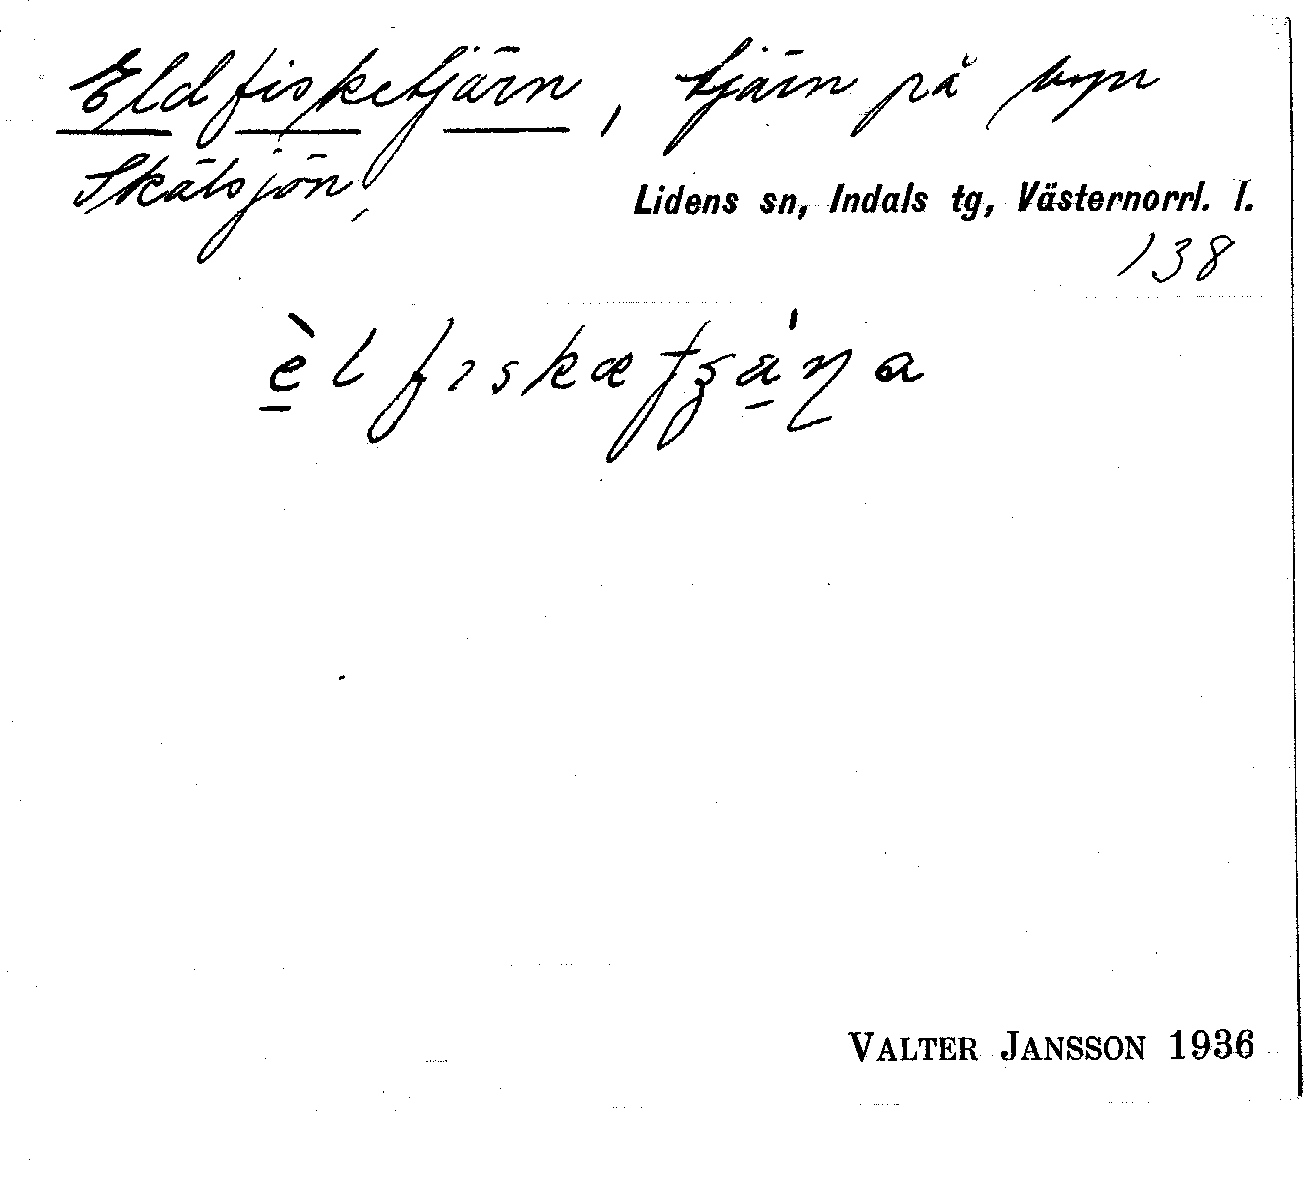 Eldfisketjärn, tjärn på byn
Skälsjön,
Lidens sn, Indals tg, Västernorrl. l.
138
èlfıskætʒä́ŋa
VALTER JANSSON 1936